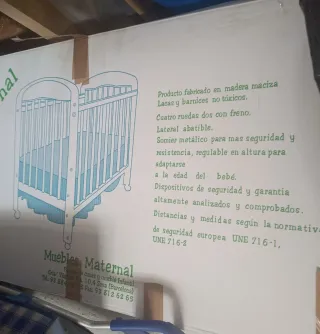 nal
Producto fabricado en madera maciza
Lacas y barnices no tóxicos.
Cuatro ruedas dos con freno.
Lateral abatible.
Somier metálico para mas seguridad y
resistencia, regulable en altura para
adaptarse
a la edad del bebé.
Dispositivos de seguridad y garantía
altamente analizados y comprobados.
Distancias y medidas según la normativa
de seguridad europea UNE 716-1,
UNE 716-2
Muebles Maternal